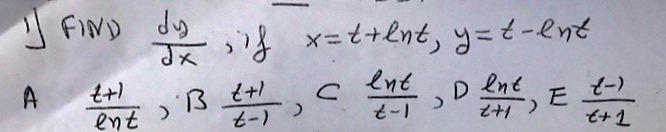 1) FIND dy/dx, if x=t+lnt, y=t-lnt
A t+1/lnt, B t+1/t-1, C lnt/t-1, D lnt/t+1, E t-1/t+1